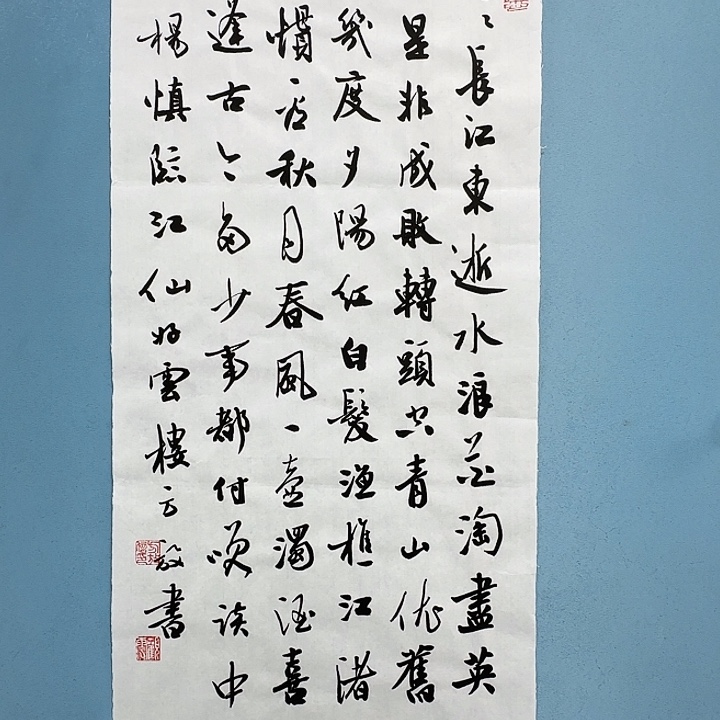 〻長江東逝水浪花淘盡英
是非成敗轉頭空青山依舊
幾度夕陽紅白髮漁樵江渚
慣看秋月春風一壺濁酒喜
逢古今多少事都付笑談中
楊慎臨江仙好雲樓方毅書